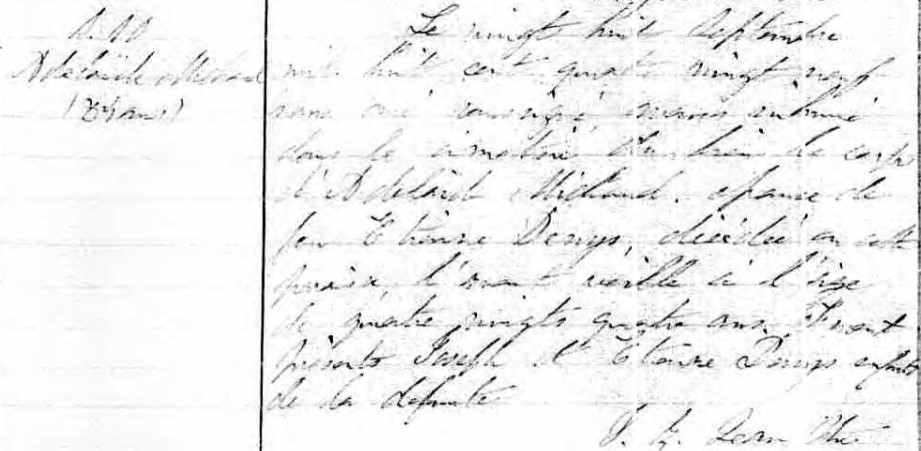 Adelaide Michaud
(84 ans)
Le vingt huit Septembre
mil huit cent quatre vingt neuf
nous curé soussigné avons inhumé
dans le cimetière du lieu le corps
d'Adelaide Michaud, épouse de
feu Etienne Denys, décédée en cette
paroisse l'avant veille à l'âge
de quatre vingts quatre ans. Furent
présents Joseph et Etienne Denys enfants
de la defunte
Jean Ptre